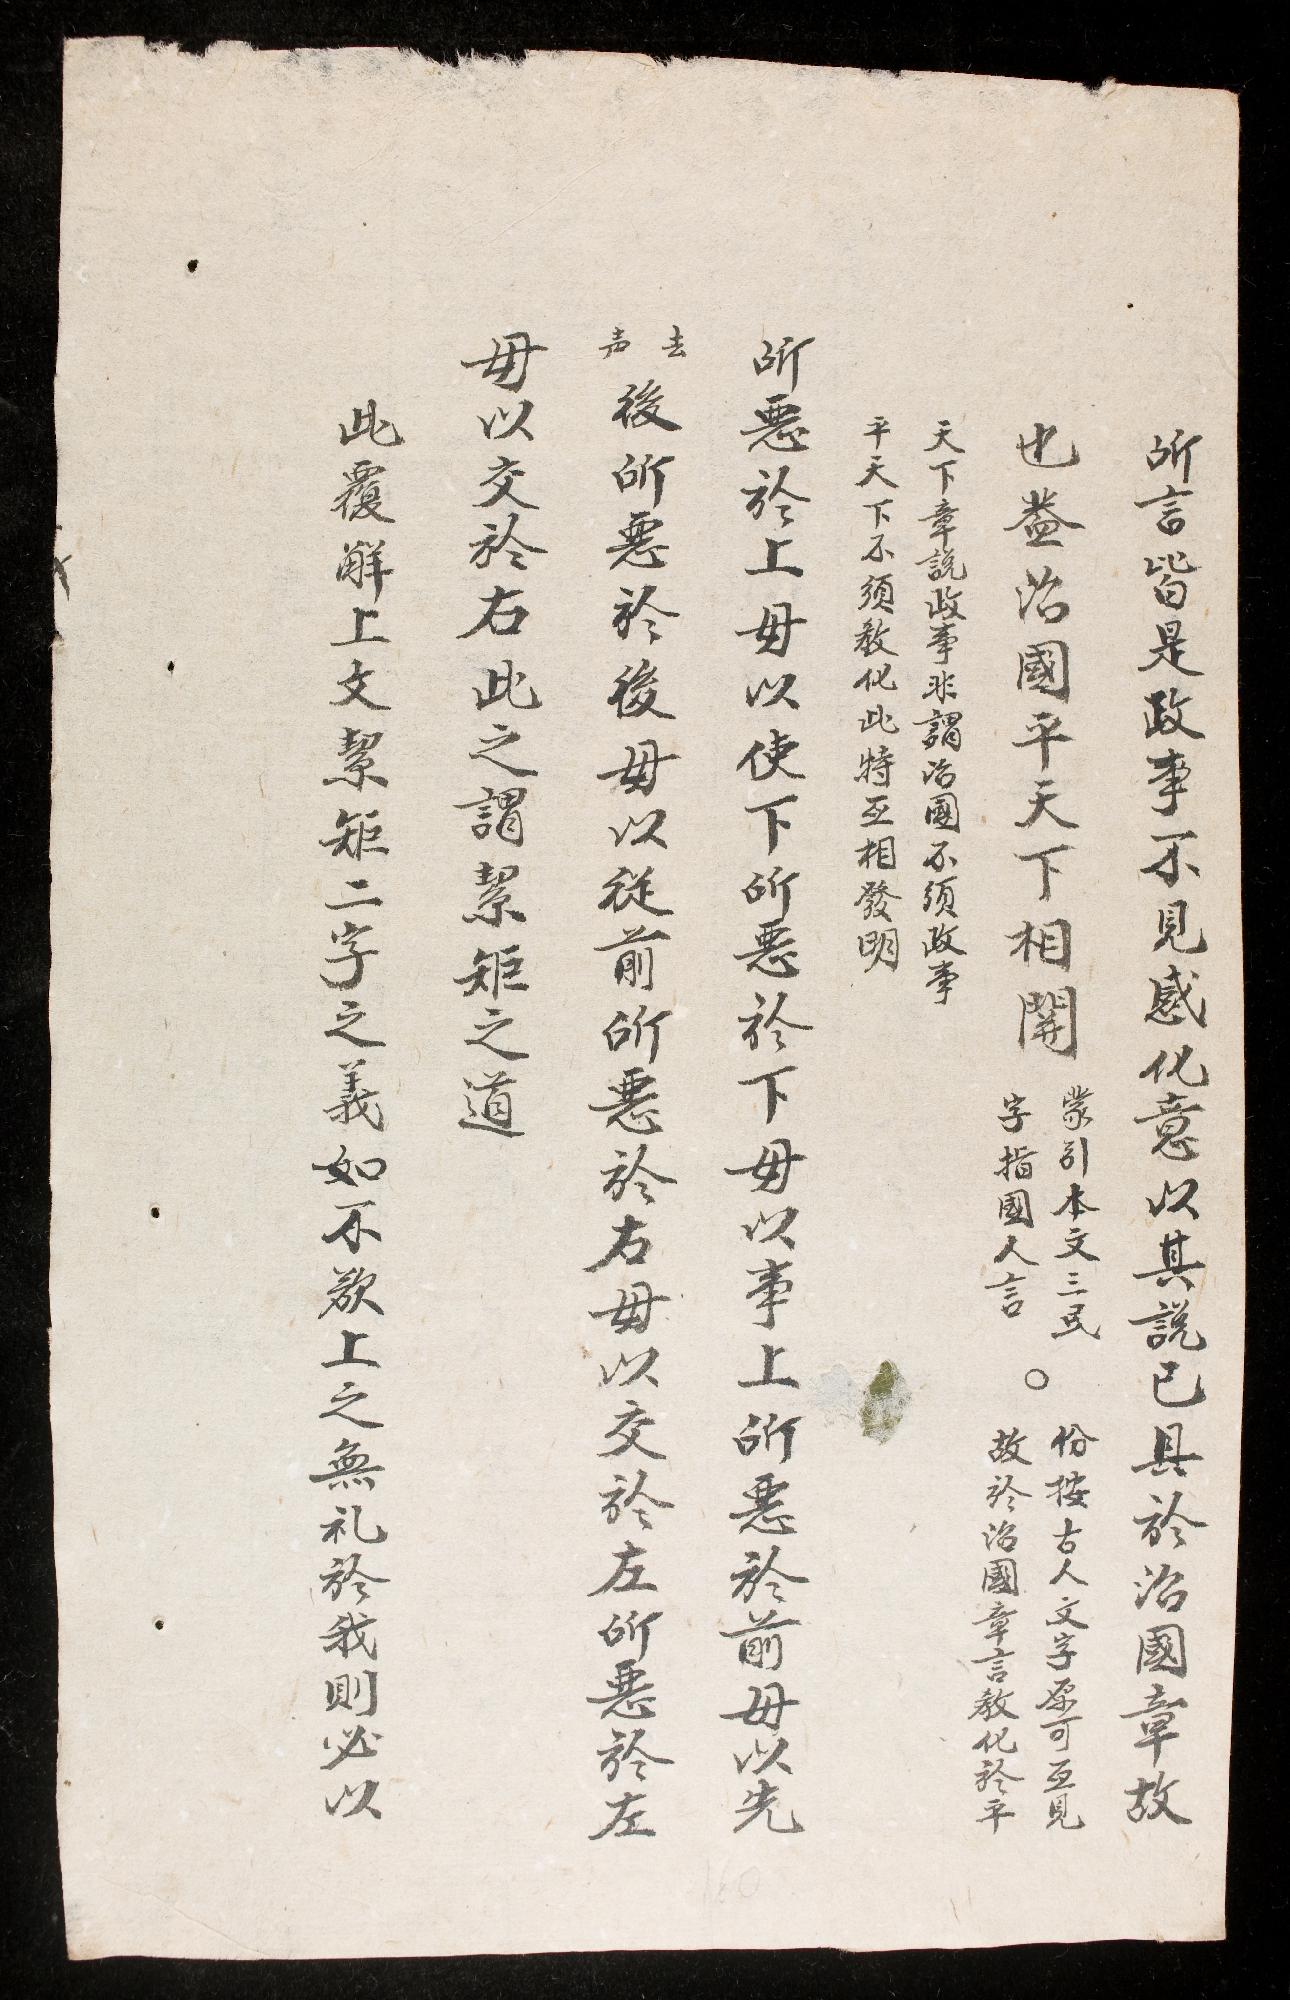 所言皆是政事不見感化意以其說已具於治國章故
也盖治國平天下相關
蒙引本文三民
字指國人言
○
份按古人文字原可互見
故於治國章言教化於平
天下章說政事非謂治國不須政事
平天下不須教化此特互相發明
所惡於上毋以使下所惡於下毋以事上所惡於前毋以先
去
声
後所惡於後毋以從前所惡於右毋以交於左所惡於左
毋以交於右此之謂絜矩之道
此覆解上文絜矩二字之義如不欲上之無礼於我則必以
160